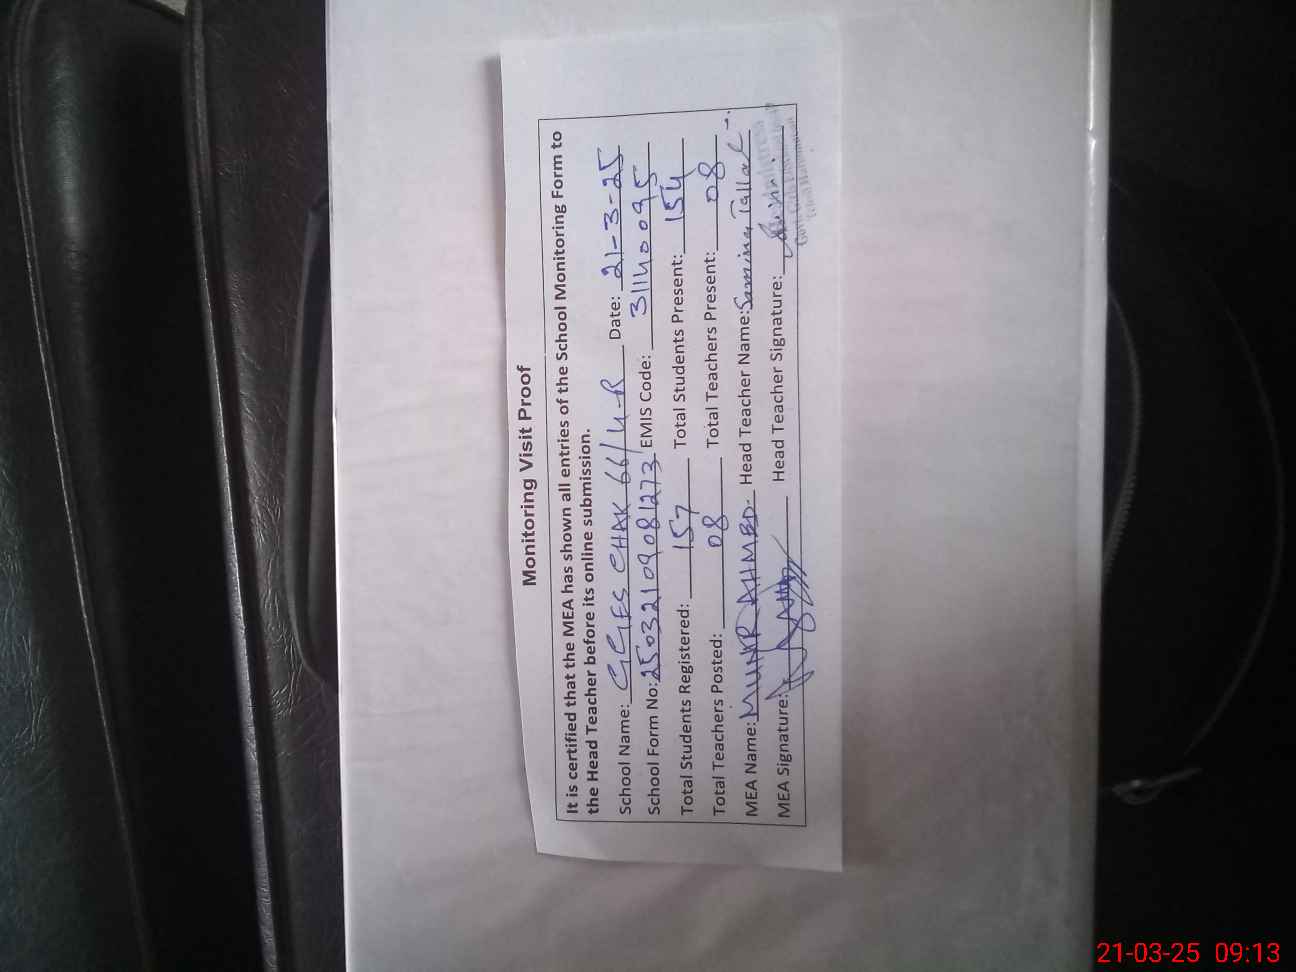 Monitoring Visit Proof
It is certified that the MEA has shown all entries of the School Monitoring Form to
the Head Teacher before its online submission.
School Name: GGES CHAK 66/4-R Date: 21-3-25
School Form No: 25032109081273 EMIS Code: 31140095
Total Students Registered: 157 Total Students Present: 154
Total Teachers Posted: 08 Total Teachers Present: 08
MEA Name: MUNIR AHMED Head Teacher Name: Samina Tallat
MEA Signature: Head Teacher Signature:
21-03-25 09:13